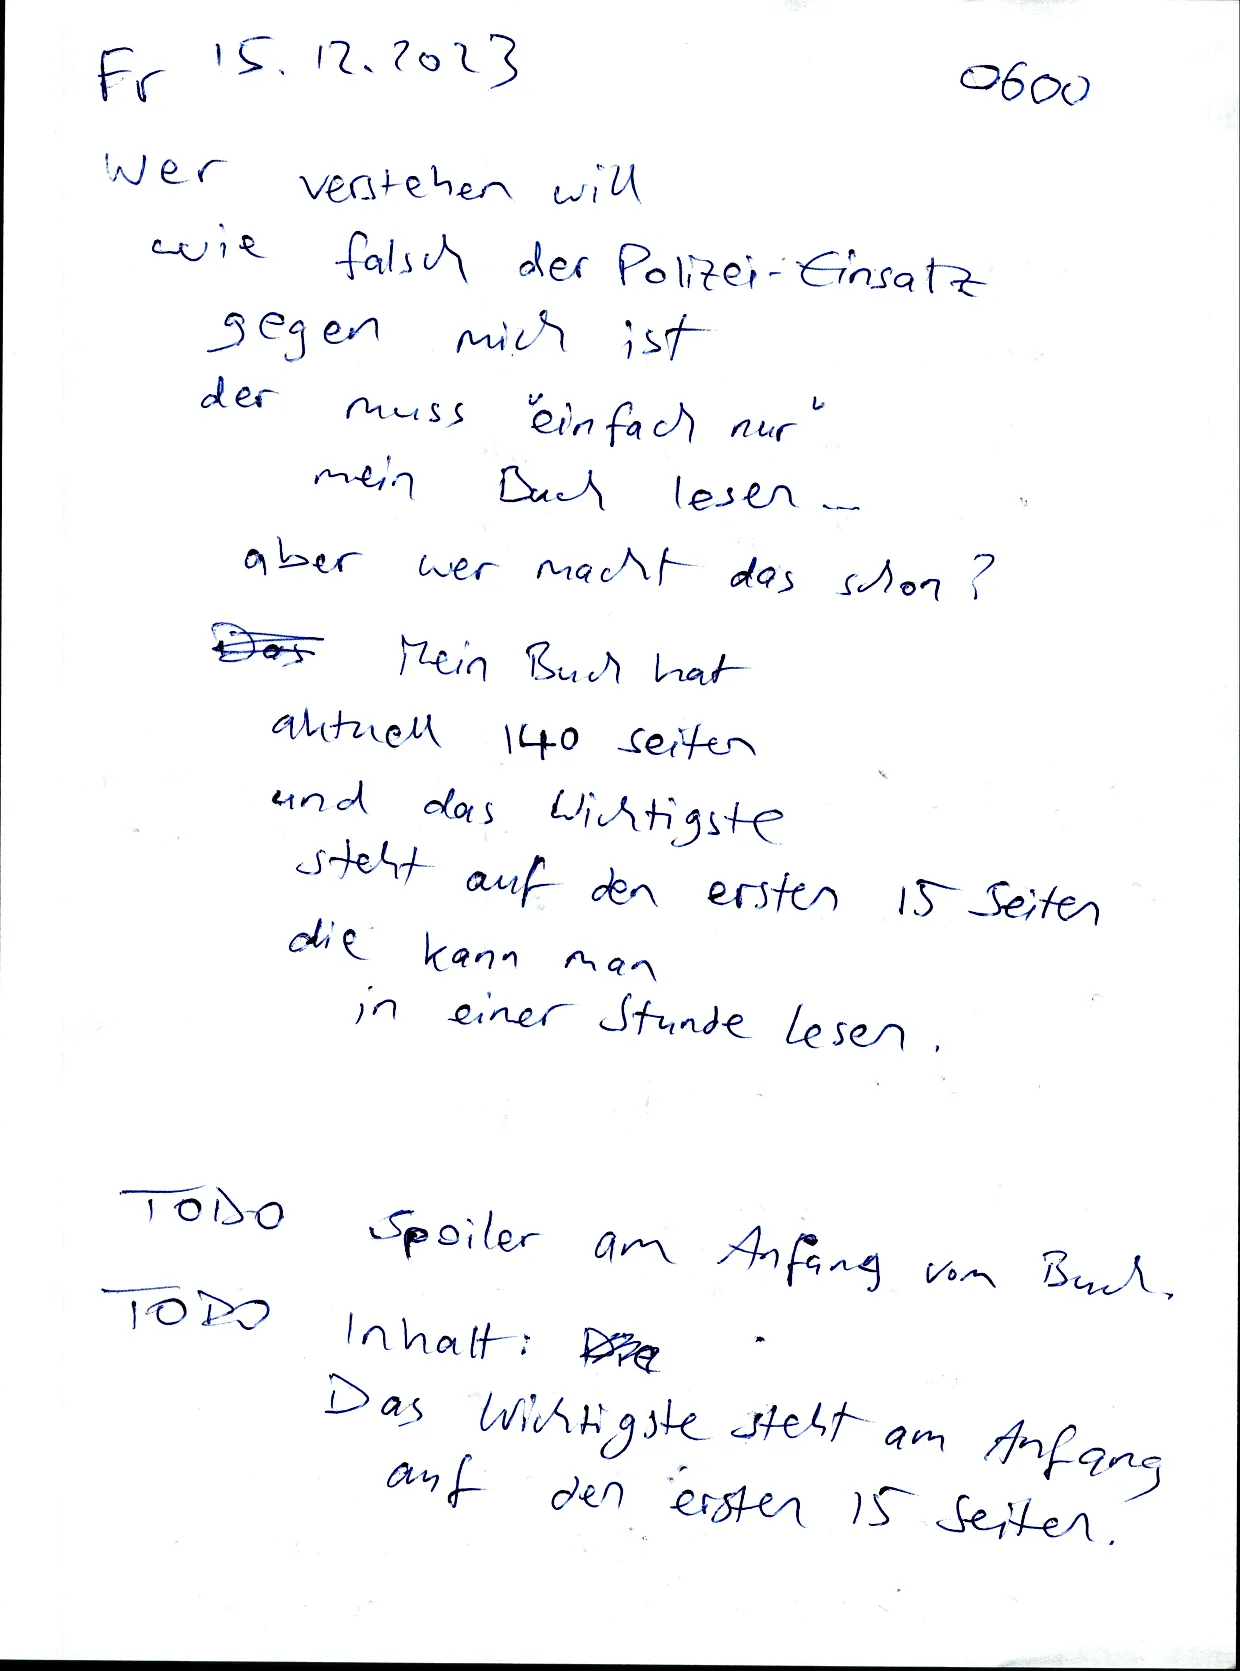 Fr 15.12.2023 0600
Wer verstehen will
wie falsch der Polizei-Einsatz
gegen mich ist
der muss "einfach nur"
mein Buch lesen...
aber wer macht das schon?
Das Mein Buch hat
aktuell 140 seiten
und das Wichtigste
steht auf den ersten 15 Seiten
die kann man
in einer Stunde lesen.
TODO Spoiler am Anfang vom Buch.
TODO Inhalt: Die
Das Wichtigste steht am Anfang
auf den ersten 15 Seiten.